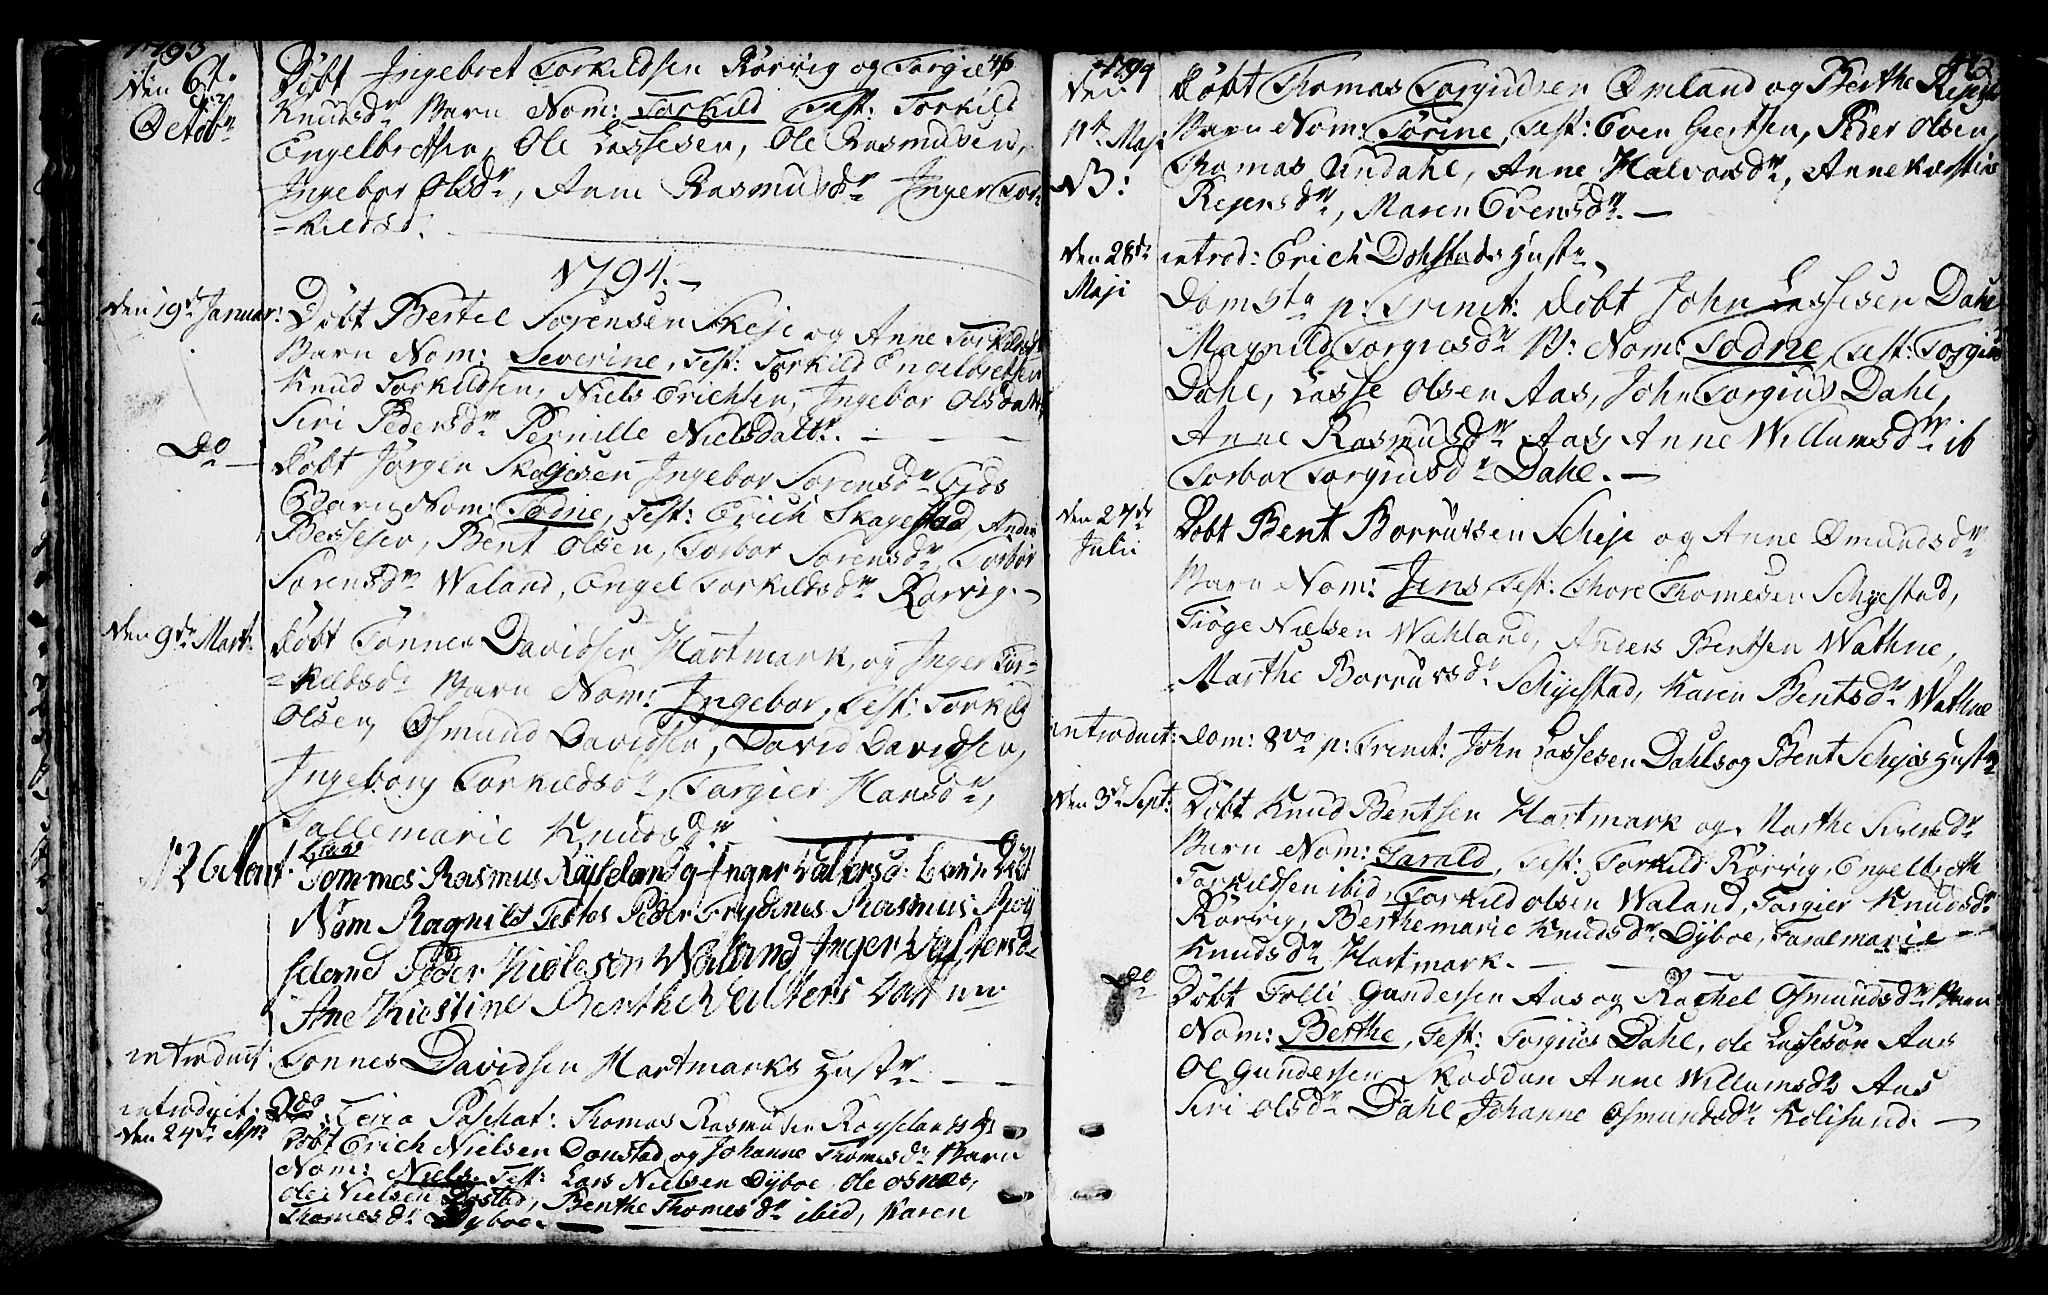 1793
den 6t. Octobr
Døbt Ingebret Torkildsen Rörvig og Targie 46
Knudsdr Barn Nom: Torkild Test: Torkild
Engelbretsen, Ole Lassesen, Ole Rasmusen,
Ingebor Olsdr, Anne Rasmusdr Inger Tor-
-kildsd.
1794.-
den 19d Januar:
Døbt Bertel Sörensen Skeje og Anne Torkildsdr
Barn Nom: Severine, Test: Torkild Engelbretsen
Knud Torkildsen, Niels Erichsen, Ingebor Olsdatr
Siri Pedersdr Pernille Nielsdattr. -
Do -
Døbt Jörgen Skeiesen Ingebor Sorensdr Eids
Barn Nom: Todne, Test: Erich Skagestad, Anders
Bessesen, Bent Olsen, Torbor Sorensdr, Torbor
Sorensdr Waland, Engel Torkildsdr Rörvig. -
den 9de Mart:
Døbt Tönnes Davidsen Hartmark, og Inger Tor-
-kildsdr Barn Nom: Ingebor, Test: Torkild
Olsen, Osmund Davidsen, David Davidsen,
Ingeborg Torkildsdr, Targier Hansdr,
Sallemarie Knudsdr
d 26 Mart.
Tommes Rasmus Røyseland og Inger Valters d: barn Døbt
Nom Ragnild Testes Peder Trydenes Rasmus Røy
seland Peder Nicoleson Wåland Inger Valtersd
Ane Kiestine Berthe Valters datter
introduct Tonnes Davidsen Hartmarks Hustr.
introduct: Feria Paschat: Thomas Rasmusen Røyselands
den 24d Apr
Døbt Erich Nielsen Donstad og Johanne Thomesdr Barn
Nom: Niels Test: Lars Nielsen Dyboe, ole osnes,
ole Nielsen Dostad, Benthe Thomesdr ibid, Karen
Thomesdr Dyboe. -
1794
den 11t Maj
NB:
Døbt Thomas Torgiusen Omland og Berthe Rejers
Barn Nom: Torine, Test: Even Giertsen, Peder Olsen,
Thomas Undahl, Anne Halvorsdr, Anne Kirstine
Rejersdr, Maren Evensdr. -
den 28de Maji
introd: Erich Dohstads Hustr.
Dom 5ta p: Trinit: Døbt John Lassesen Dahl
Magnild Torgiusdr B: Nom: Todne Test: Torgius
Dahl, Lasse Olsen Aas, John Torgius Dahl,
Anne Rasmusdr Aas, Anne Willumsdr ib
Torbor Torgiusdr Dahl. -
den 27de Julii
Døbt Bent Borrusen Scheje og Anne Omundsdr
Barn Nom: Jens, Test: Thore Thomesen Schjestad,
Tiöge Nielsen Wahland, Anders Bentsen Wathne,
Marthe Borrursdr Schjestad, Karen Bentsdr Wathne
introduct: Dom: 8va p: Trinit: John Lassesen Dahls og Bent Schejes Hustr
den 3d Sept:
Døbt Knud Bentsen Hartmark og Marthe Sivertsdr
Barn Nom: Tarald, Test: Torkild Rörvig, Engelbreth
Torkildsen ibid, Torkild olsen Waland, Targier Knudsdr
Rörvig, Berthemarie Knudsdr Dyboe, Saralemarie
Knudsdr Hartmark. -
do
Døbt Tolli Gundersen Aas og Rachel Osmundsdr Barn
Nom: Berthe, Test: Torgius Dahl, ole Lassesøn Aas
Ol Gundersen Skoddan Anne Willumsdr Aas
Siri olsdr Dahl Johanne Osmundsdr Kolisund. -